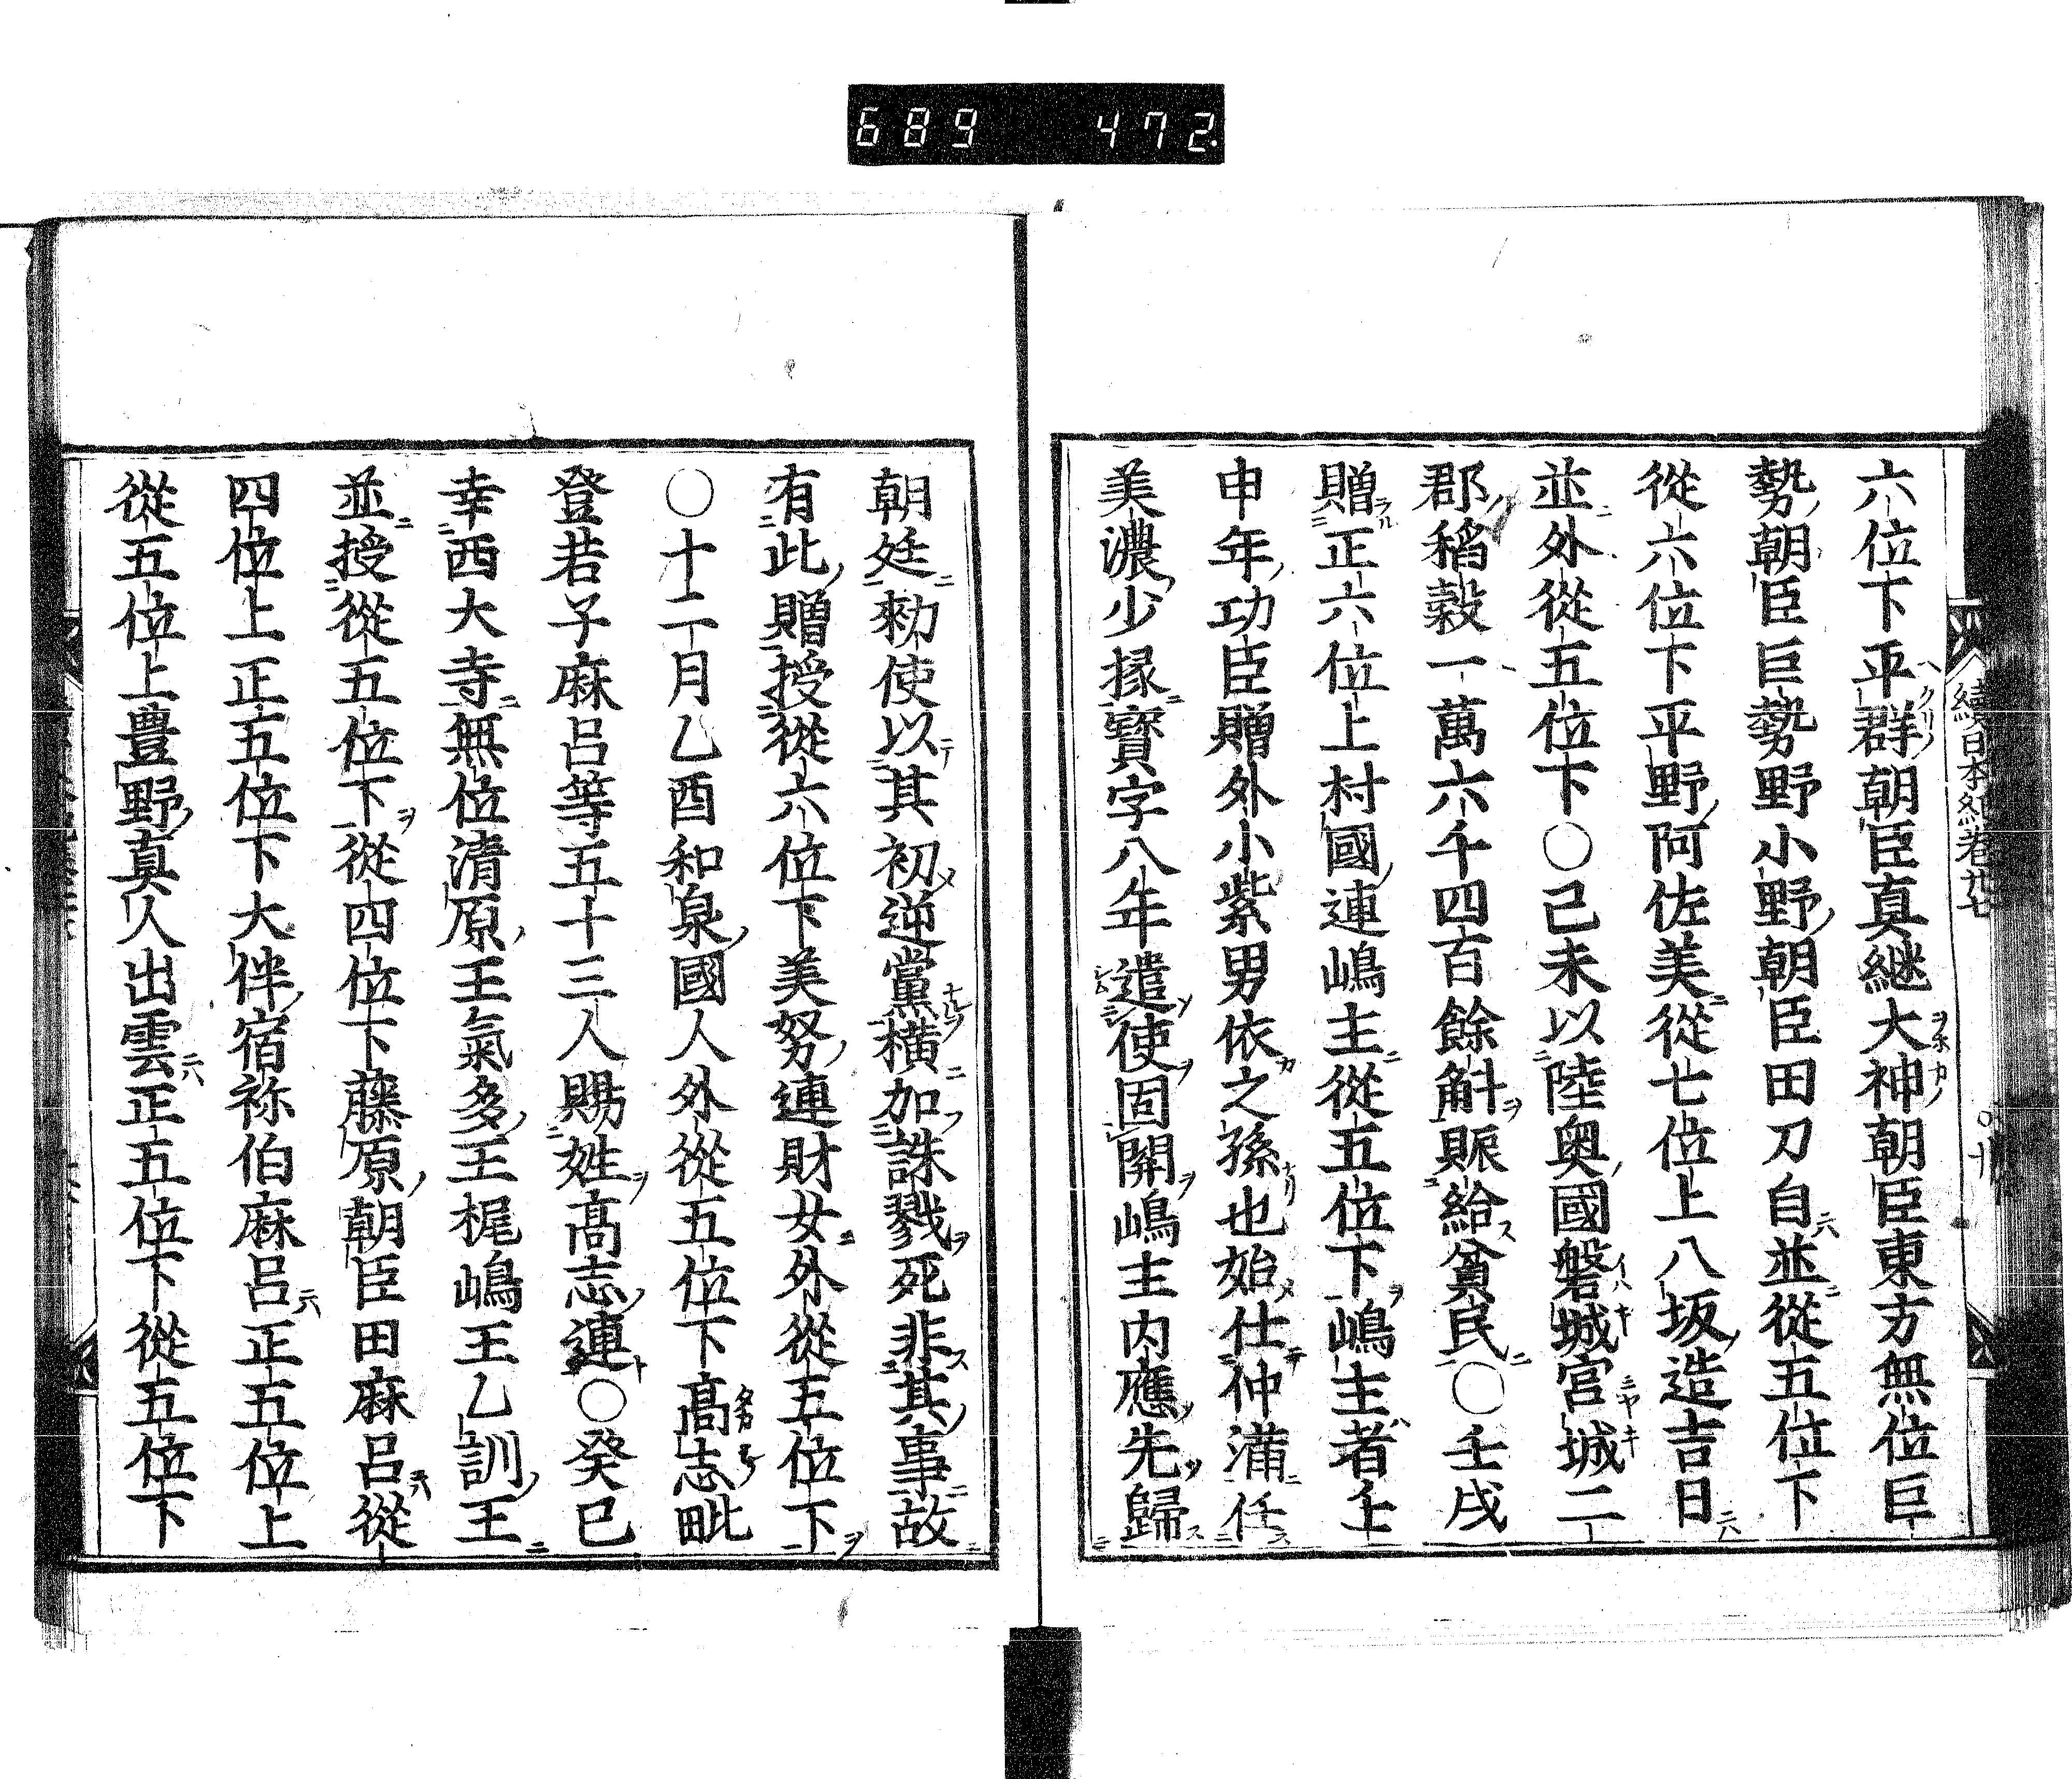 689 472
六位下平群朝臣真継大神朝臣東方無位巨
勢朝臣巨勢野小野朝臣田刀自並從五位下
從六位下平野阿佐美從七位上八坂造吉日
並外從五位下○己未以陸奥國磐城宮城二
郡稻穀一萬六千四百餘斛賑給貧民○壬戌
贈正六位上村國連嶋主從五位下嶋主者壬
申年功臣贈外小紫男依之孫也始仕仲満任
美濃少掾寳字八年遣使固關嶋主内應先歸
朝廷勅使以其初逆黨横加誅戮死非其事故
有此贈授從六位下美努連財女外從五位下
○十二月乙酉和泉國人外從五位下髙志毗
登若子麻呂等五十三人賜姓髙志連○癸巳
幸西大寺無位清原王氣多王梶嶋王乙訓王
並授從五位下從四位下藤原朝臣田麻呂從
四位上正五位下大伴宿祢伯麻呂正五位上
從五位上豊野真人出雲正五位下從五位下
續日本紀巻廿七